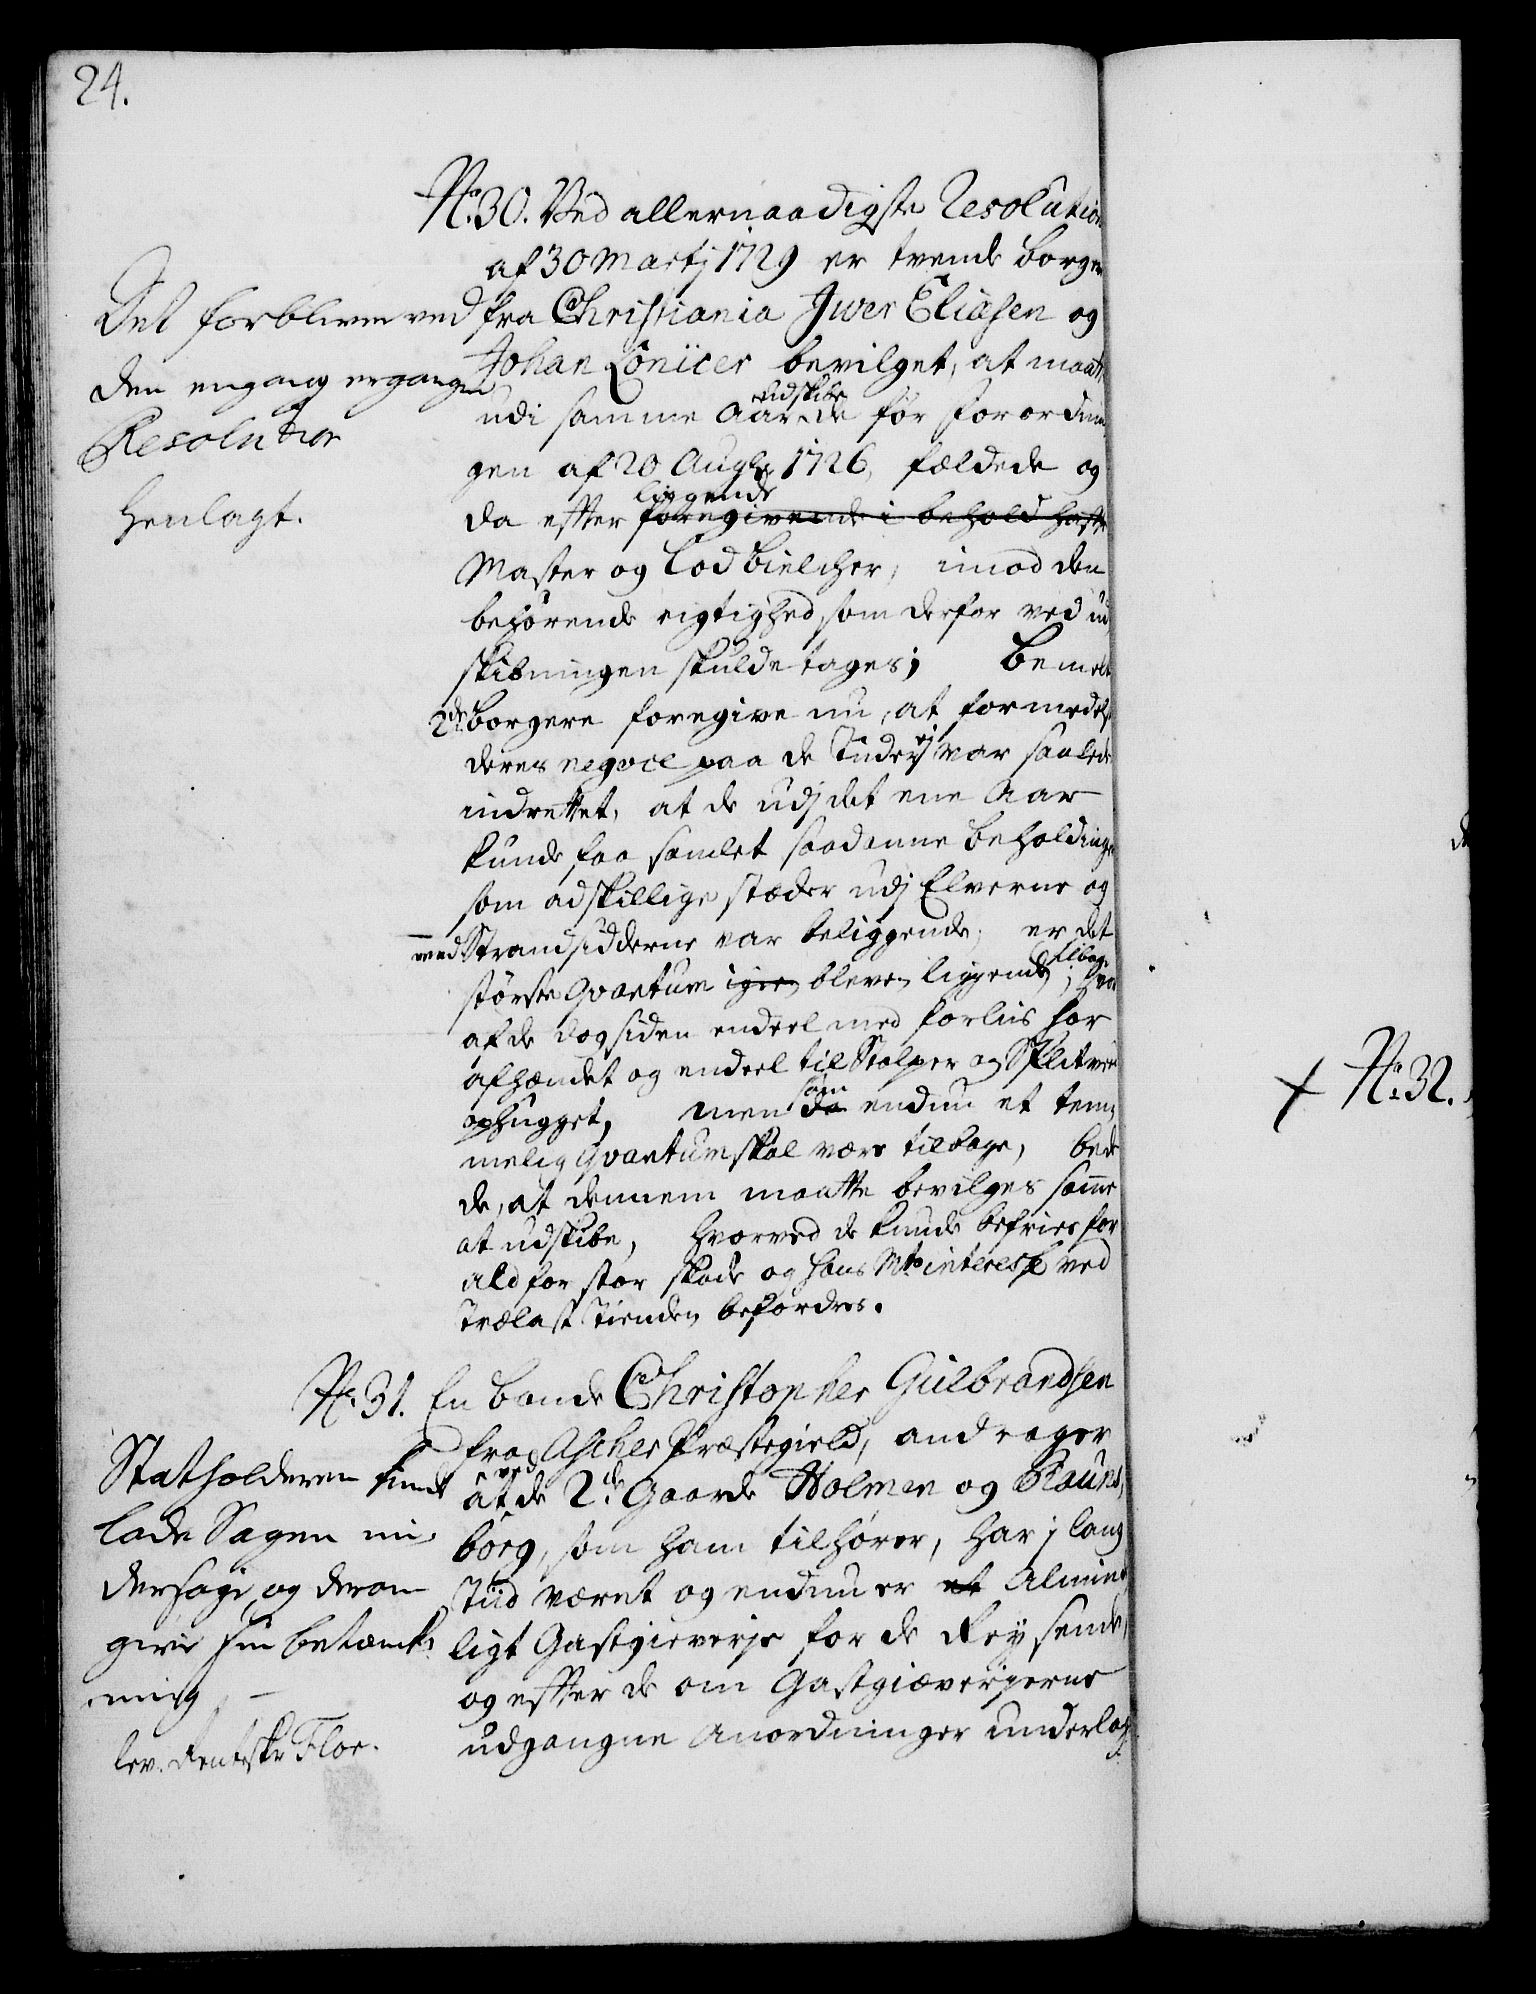 24.
No. 30. Ved allernaadigste Resolution
af 30 Martj 1729 er tvende borger
fra Christiania Jver Eliasen og
Johan Lönicer bevilget, at maatte
udi samme Aar de udskibe før Forordnin
gen af 20 Augti 1726, fældede og
da efter foregivende i behold hafte liggende
Master og Lod bielcher, imod den
behørende rigtighed, som derfor ved ud
skibningen skulde tages; Bemelte
2de borgere foregive nu, at formedelst
deres negoce paa de Tider ej var saaledes
indrettet, at de udj det ene Aar
kunde faa samlet saadanne beholdinger
som adskillige stæder udj Elverne og
ved Strandsidderne var beliggende, er det
største Qvantum igien bleven liggende tilbage; hvor
af de dog siden endeel med forliis har
afhændet og endeel til Stolper og Splitved
ophugget, men da som endnu et tem,
melig Qvantum skal være tilbage, bede
de, at dennem maatte bevilges samme
at udskibe, hvorved de kunde befries for
ald for stor skade og Hans Mts interesse ved
Trælast Tienden befordres.
Det forbliver ved
den engang ergangen
Resolution
Henlagt.
No. 31. En bonde Christopher Gulbrandsen
fra Ascher Præstegield, andrager
at ved de 2de Gaarde Holmen og Rauns,
borg, som ham tilhører, har j lang
Tiid været og endnu er et Almind
ligt Gastgieverje for de Reysende,
og efter de om Gastgiæverjerne
udgangne Anordninger underlag
Statholderen kunde
lade Sagen un,
dersøge, og derom
give sin betænk,
ning, –
lev. Rentskr Floe.
+ No. 32.